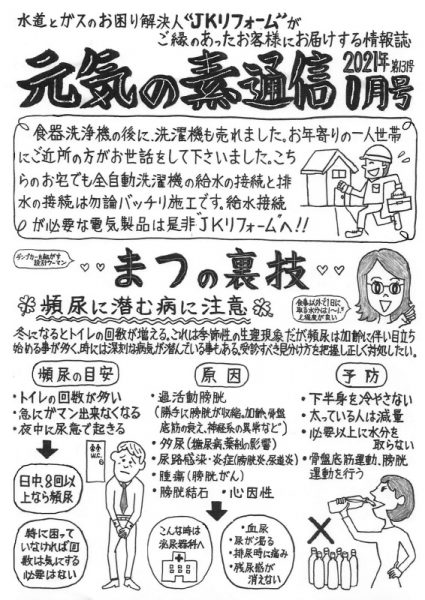 水道とガスのお困り解決人“JKリフォーム”が
ご縁のあったお客様にお届けする情報誌
元気の素通信
2021年
第131号
1月号
食器洗浄機の後に、洗濯機も売れました。お年寄りの一人世帯
にご近所の方がお世話をして下さいました。こち
らのお宅でも全自動洗濯機の給水の接続と排
水の接続は勿論バッチリ施工です。給水接続
が必要な電気製品は是非“JKリフォーム”へ!!
まつの裏技
食事以外で1日に
取る水分は1〜1.5
頻尿に潜む病に注意
冬になるとトイレの回数が増える。これは季節性の生理現象だが頻尿は加齢に伴い目立ち
始める事が多く、時には深刻な病気が潜んでいる事もある。受診すべき見分け方を把握し正しく対処したい。
頻尿の目安
・トイレの回数が多い
・急にガマン出来なくなる
・夜中に尿意で起きる
日中、8回以
上なら頻尿
特に困って
いなければ回
数は気にする
必要はない
W.C.
原因
・過活動膀胱
(勝手に膀胱が収縮。加齢、骨盤
底筋の衰え、神経系の異常など)
・多尿(糖尿病、薬剤の影響)
・尿路感染・炎症(膀胱炎、尿道炎)
・腫瘍(膀胱がん)
・膀胱結石 ・心因性
こんな時は
泌尿器科へ
・血尿
・尿が濁る
・排尿時に痛み
・残尿感が
消えない
予防
・下半身を冷やさない
・太っている人は減量
・必要以上に水分を
取らない
・骨盤底筋運動、膀胱
運動を行う